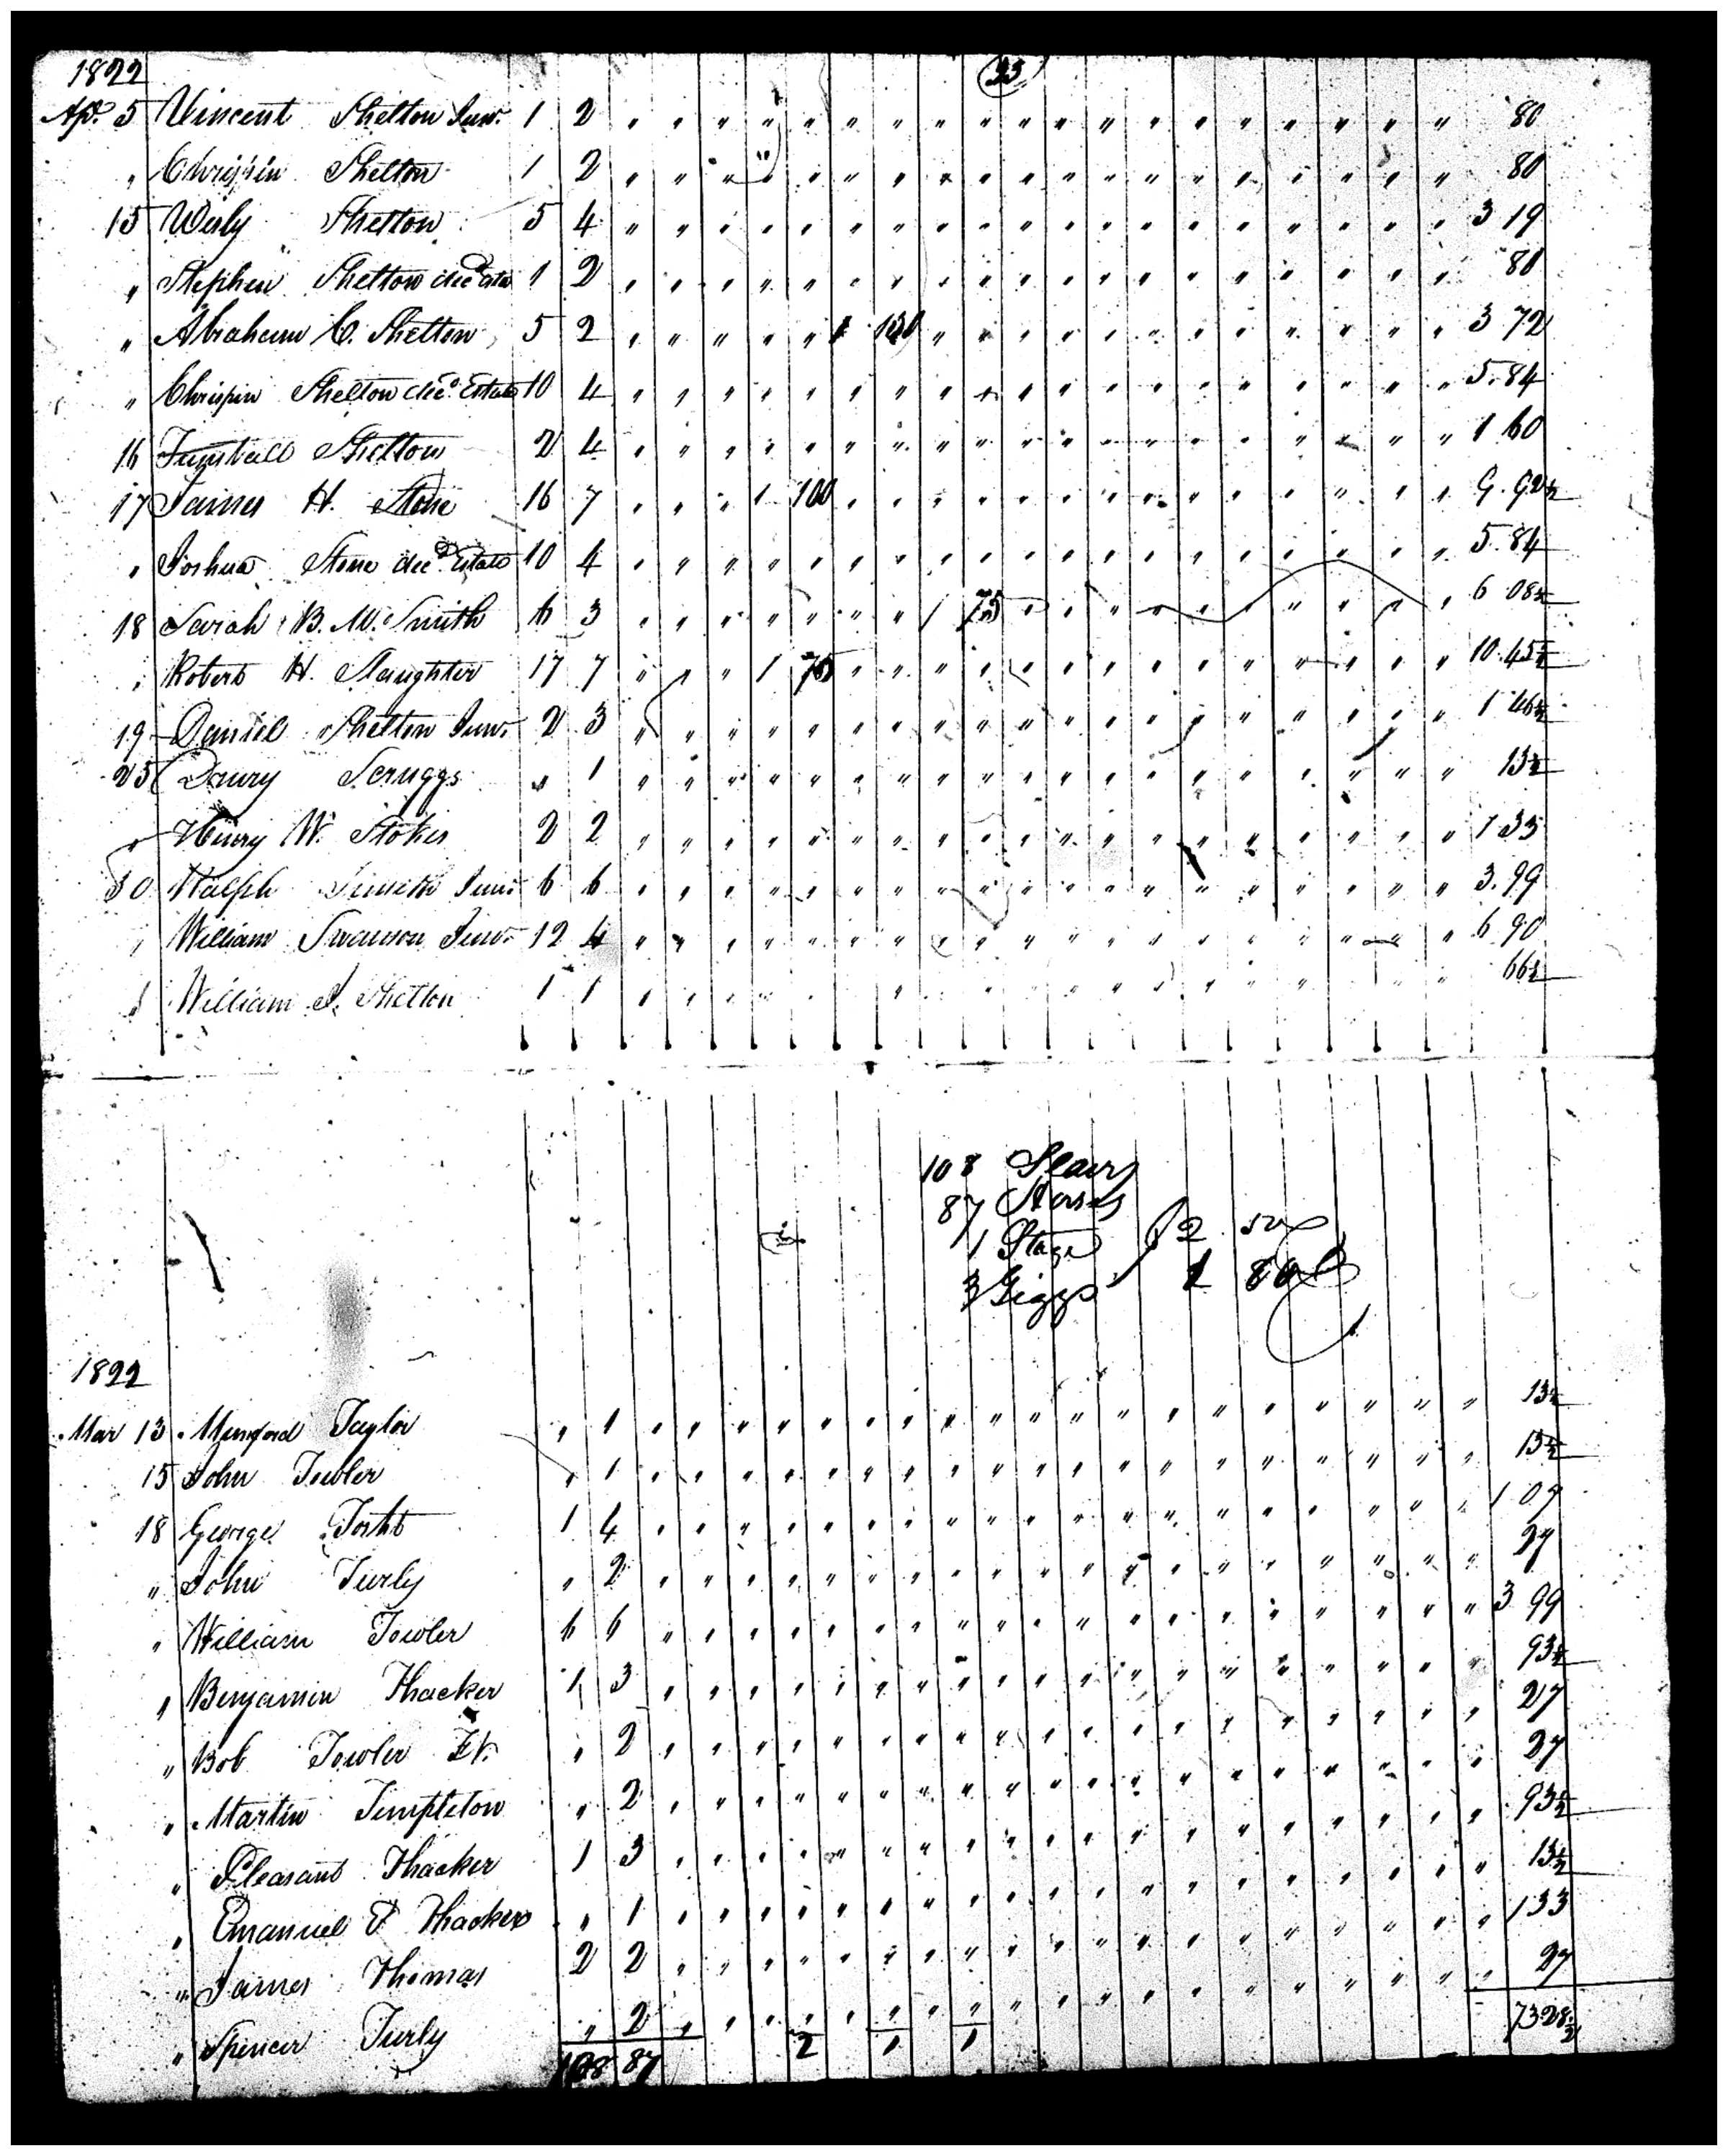 1822
33
Apl. 5 Vincent Shelton Junr. 1 2 " " " " " " " " " " " " " " " " " " " 80
" Chrispin Shelton 1 2 " " " " " " " " " " " " " " " " " " " 80
15 Weily Shelton 5 4 " " " " " " " " " " " " " " " " " " " 3 19
" Stephen Shelton decd 1 2 " " " " " " " " " " " " " " " " " " " 80
" Abraham C. Shelton 5 2 " " " " " 1 130 " " " " " " " " " " " " 3 72
" Chrispin Shelton decd. Estate 10 4 " " " " " " " " " " " " " " " " " " " 5.84
16 Shelton 2 4 " " " " " " " " " " " " " " " " " " " 1 60
17 James H. Stone 16 7 " " " 1 100 " " " " " " " " " " " " " " 9.92½
" Joshua Stone decd. Estate 10 4 " " " " " " " " " " " " " " " " " " " 5.84
18 Sarah B. M. Smith 6 3 " " " " " " " 1 75 " " " " " " " " " " 6 08½
" Robert H. Slaughter 17 7 " " " 1 75 " " " " " " " " " " " " " " 10.45½
19 Daniel Shelton Junr. 2 3 " " " " " " " " " " " " " " " " " " " 1 46½
25 Drury Scruggs " 1 " " " " " " " " " " " " " " " " " " " 13½
" Henry W. Stokes 2 2 " " " " " " " " " " " " " " " " " " " 1 33
30 Ralph Smith Junr. 6 6 " " " " " " " " " " " " " " " " " " " 3.99
" William Swanson Junr. 12 4 " " " " " " " " " " " " " " " " " " " 6 90
" William S. Shelton 1 1 " " " " " " " " " " " " " " " " " " " 66½
108 Slaves
87 Horses
1 Stage
3 Giggs
1822
Mar 13 Munford Taylor " 1 " " " " " " " " " " " " " " " " " " " 13½
15 John Towler " 1 " " " " " " " " " " " " " " " " " " " 13½
18 George 1 4 " " " " " " " " " " " " " " " " " " " 1 07
" John Turly " 2 " " " " " " " " " " " " " " " " " " " 27
" William Towler 6 6 " " " " " " " " " " " " " " " " " " " 3 99
" Benjamin Thacker 1 3 " " " " " " " " " " " " " " " " " " " 93½
" Bob Towler " 2 " " " " " " " " " " " " " " " " " " " 27
" Martin Templeton " 2 " " " " " " " " " " " " " " " " " " " 27
" Pleasant Thacker 1 3 " " " " " " " " " " " " " " " " " " " 93½
" Emanuel T Thacker " 1 " " " " " " " " " " " " " " " " " " " 13½
" James Thomas 2 2 " " " " " " " " " " " " " " " " " " " 1 33
" Spencer Turly " 2 " " " " " " " " " " " " " " " " " " " 27
108 87 2 1 1 73.28½